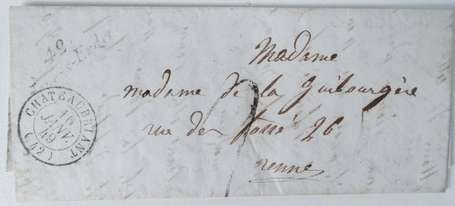 42
CHATEAUBRIANT
16
JANV.
49
(42)
Madame
madame de la Guibourgère
rue de 26
renne
2